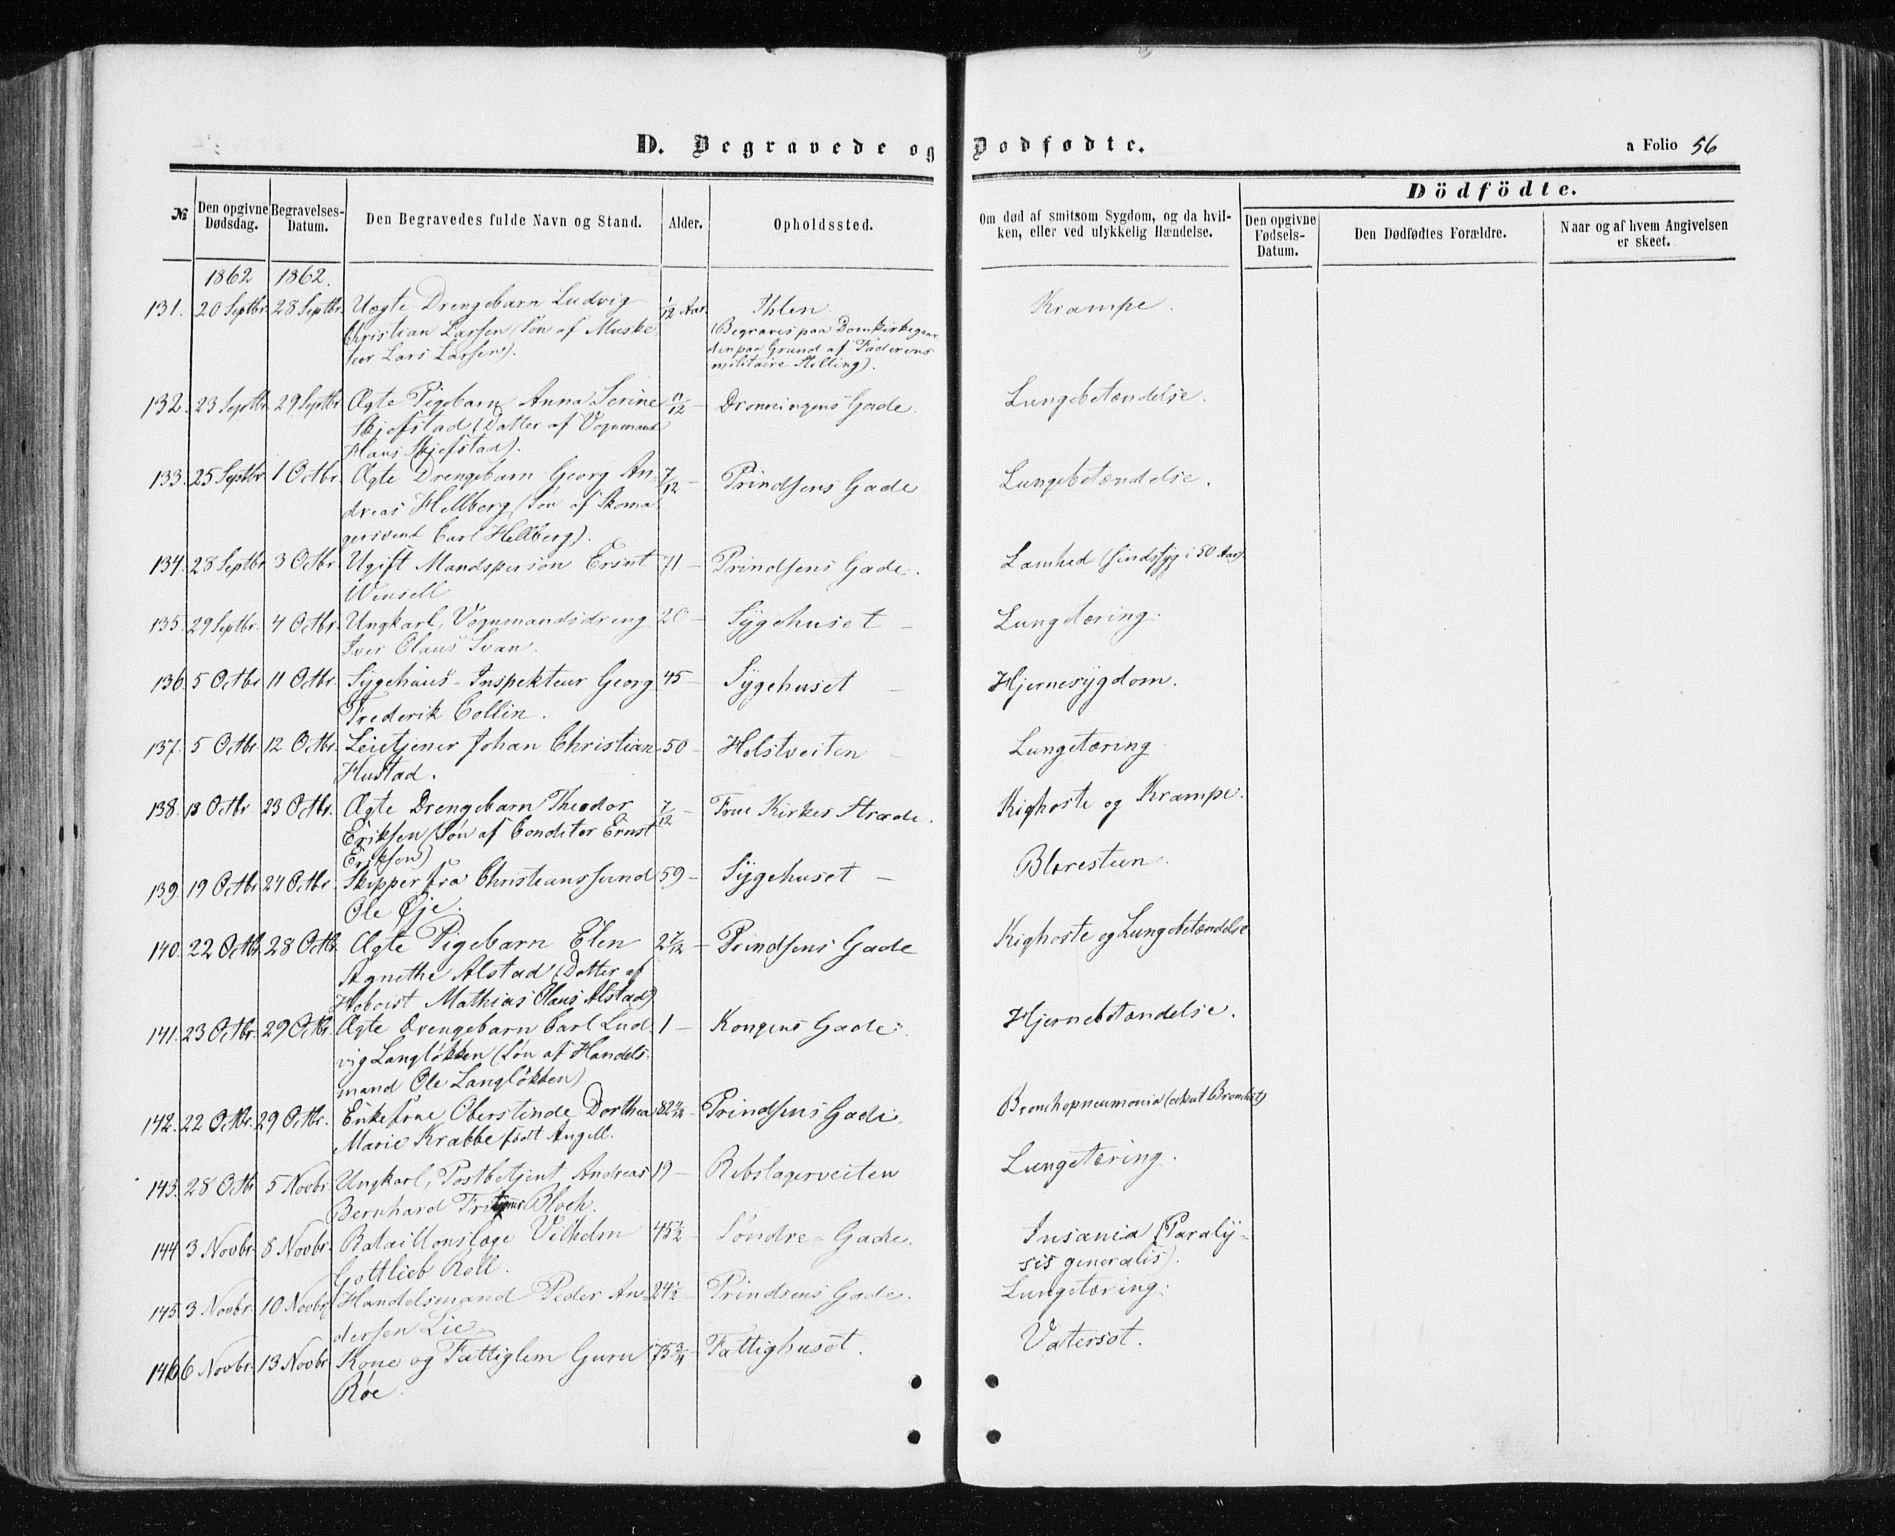 D. Begravede og Dødfødte.
a Folio 56
№ Den opgivne Dødsdag. Begravelses-Datum. Den Begravedes fulde Navn og Stand. Alder. Opholdssted. Om død af smitsom Sygdom, og da hvil-
ken, eller ved ulykkelig Hændelse.
Dödfödte.
Den opgivne Fødsels-Datum. Den Dødfødtes Forældre. Naar og af hvem Angivelsen er skeet.
1862 1862.
131. 20 Septbr. 28 Septbr. Uægte Drengebarn Ludvig 1/12 Aar. Ihlen Krampe.
Christian Larsen (Søn af Muske- (Begraves paa Domkirkegaar-
teer Lars Larsen). den paa Grund af Faderens
militaire Stilling).
132. 23 Septbr. 29 Septbr. Ægte Pigebarn Anna Serine 11/12 – Dronningens Gade. Lungebetændelse.
Skjefstad (Datter af Vognmand
Hans Skjefstad).
133. 25 Septbr. 1 Octbr. Ægte Drengebarn Georg An- 7/12 – Prindsens Gade Lungebetændelse.
dreas Hellberg (Søn af Skoma-
gersvend Carl Hellberg).
134. 28 Septbr. 3 Octbr. Ugift Mandsperson Ernst 71 – Prindsens Gade. Lamhed (Sindssyg i 50 Aar)
Wensell
135. 29 Septbr. 4 Octbr. Ungkarl, Vognmandsdreng 20 – Sygehuset – Lungetæring.
Iver Claus Svan.
136. 5 Octbr. 11 Octbr. Sygehuus-Inspekteur Georg 45 – Sygehuset – Hjernesygdom.
Frederik Collin.
137. 5 Octbr. 12 Octbr. Leietjener Johan Christian 50 – Holstveiten – Lungetæring
Hustad.
138. 18 Octbr 23 Octbr. Ægte Drengebarn Theodor 7/12 – Frue Kirkes Stræde. Kighoste og Krampe.
Eriksen (Søn af Conditor Ernst
Eriksen)
139. 19 Octbr. 24 Octbr. Skipper fra Christianssund 59 – Sygehuset – Blæresteen.
Ole Øje.
140. 22 Octbr. 28 Octbr. Ægte Pigebarn Elen 2 7/12 – Prindsens Gade Kighoste og Lungebetændelse
Agnethe Alstad (Datter af
Hoboist Mathias Claus Alstad)
141. 23 Octbr. 29 Octbr. Ægte Drengebarn Carl Lud- 1 – Kongens Gade. Hjernebetændelse.
vig Langløkken (Søn af Handels-
mand Ole Langløkken)
142. 22 Octbr. 29 Octbr. Enkefrue Oberstinde Dorthea 82 – Prindsens Gade. Bronchopneumonia (akut Bronchit)
Marie Krabbe født Angell.
143. 28 Octbr 5 Novbr. Ungkarl, Postbetjent Andreas 19 – Rebslagerveiten Lungetæring.
Bernhard Bloch.
144. 3 Novbr. 8 Novbr. Bataillonslæge Vilhelm 45 1/2 – Søndre-Gade. Insania (Paraly-
Gottlieb Roll. sis generalis).
145. 3 Novbr. 10 Novbr. Handelsmand Peder An- 24 1/2 – Prindsens Gade. Lungetæring.
dersen Lie
146. 6 Novbr. 13 Novbr. Kone og Fattiglem Guru 75 3/4 – Fattighuset. Vatersot.
Røe.